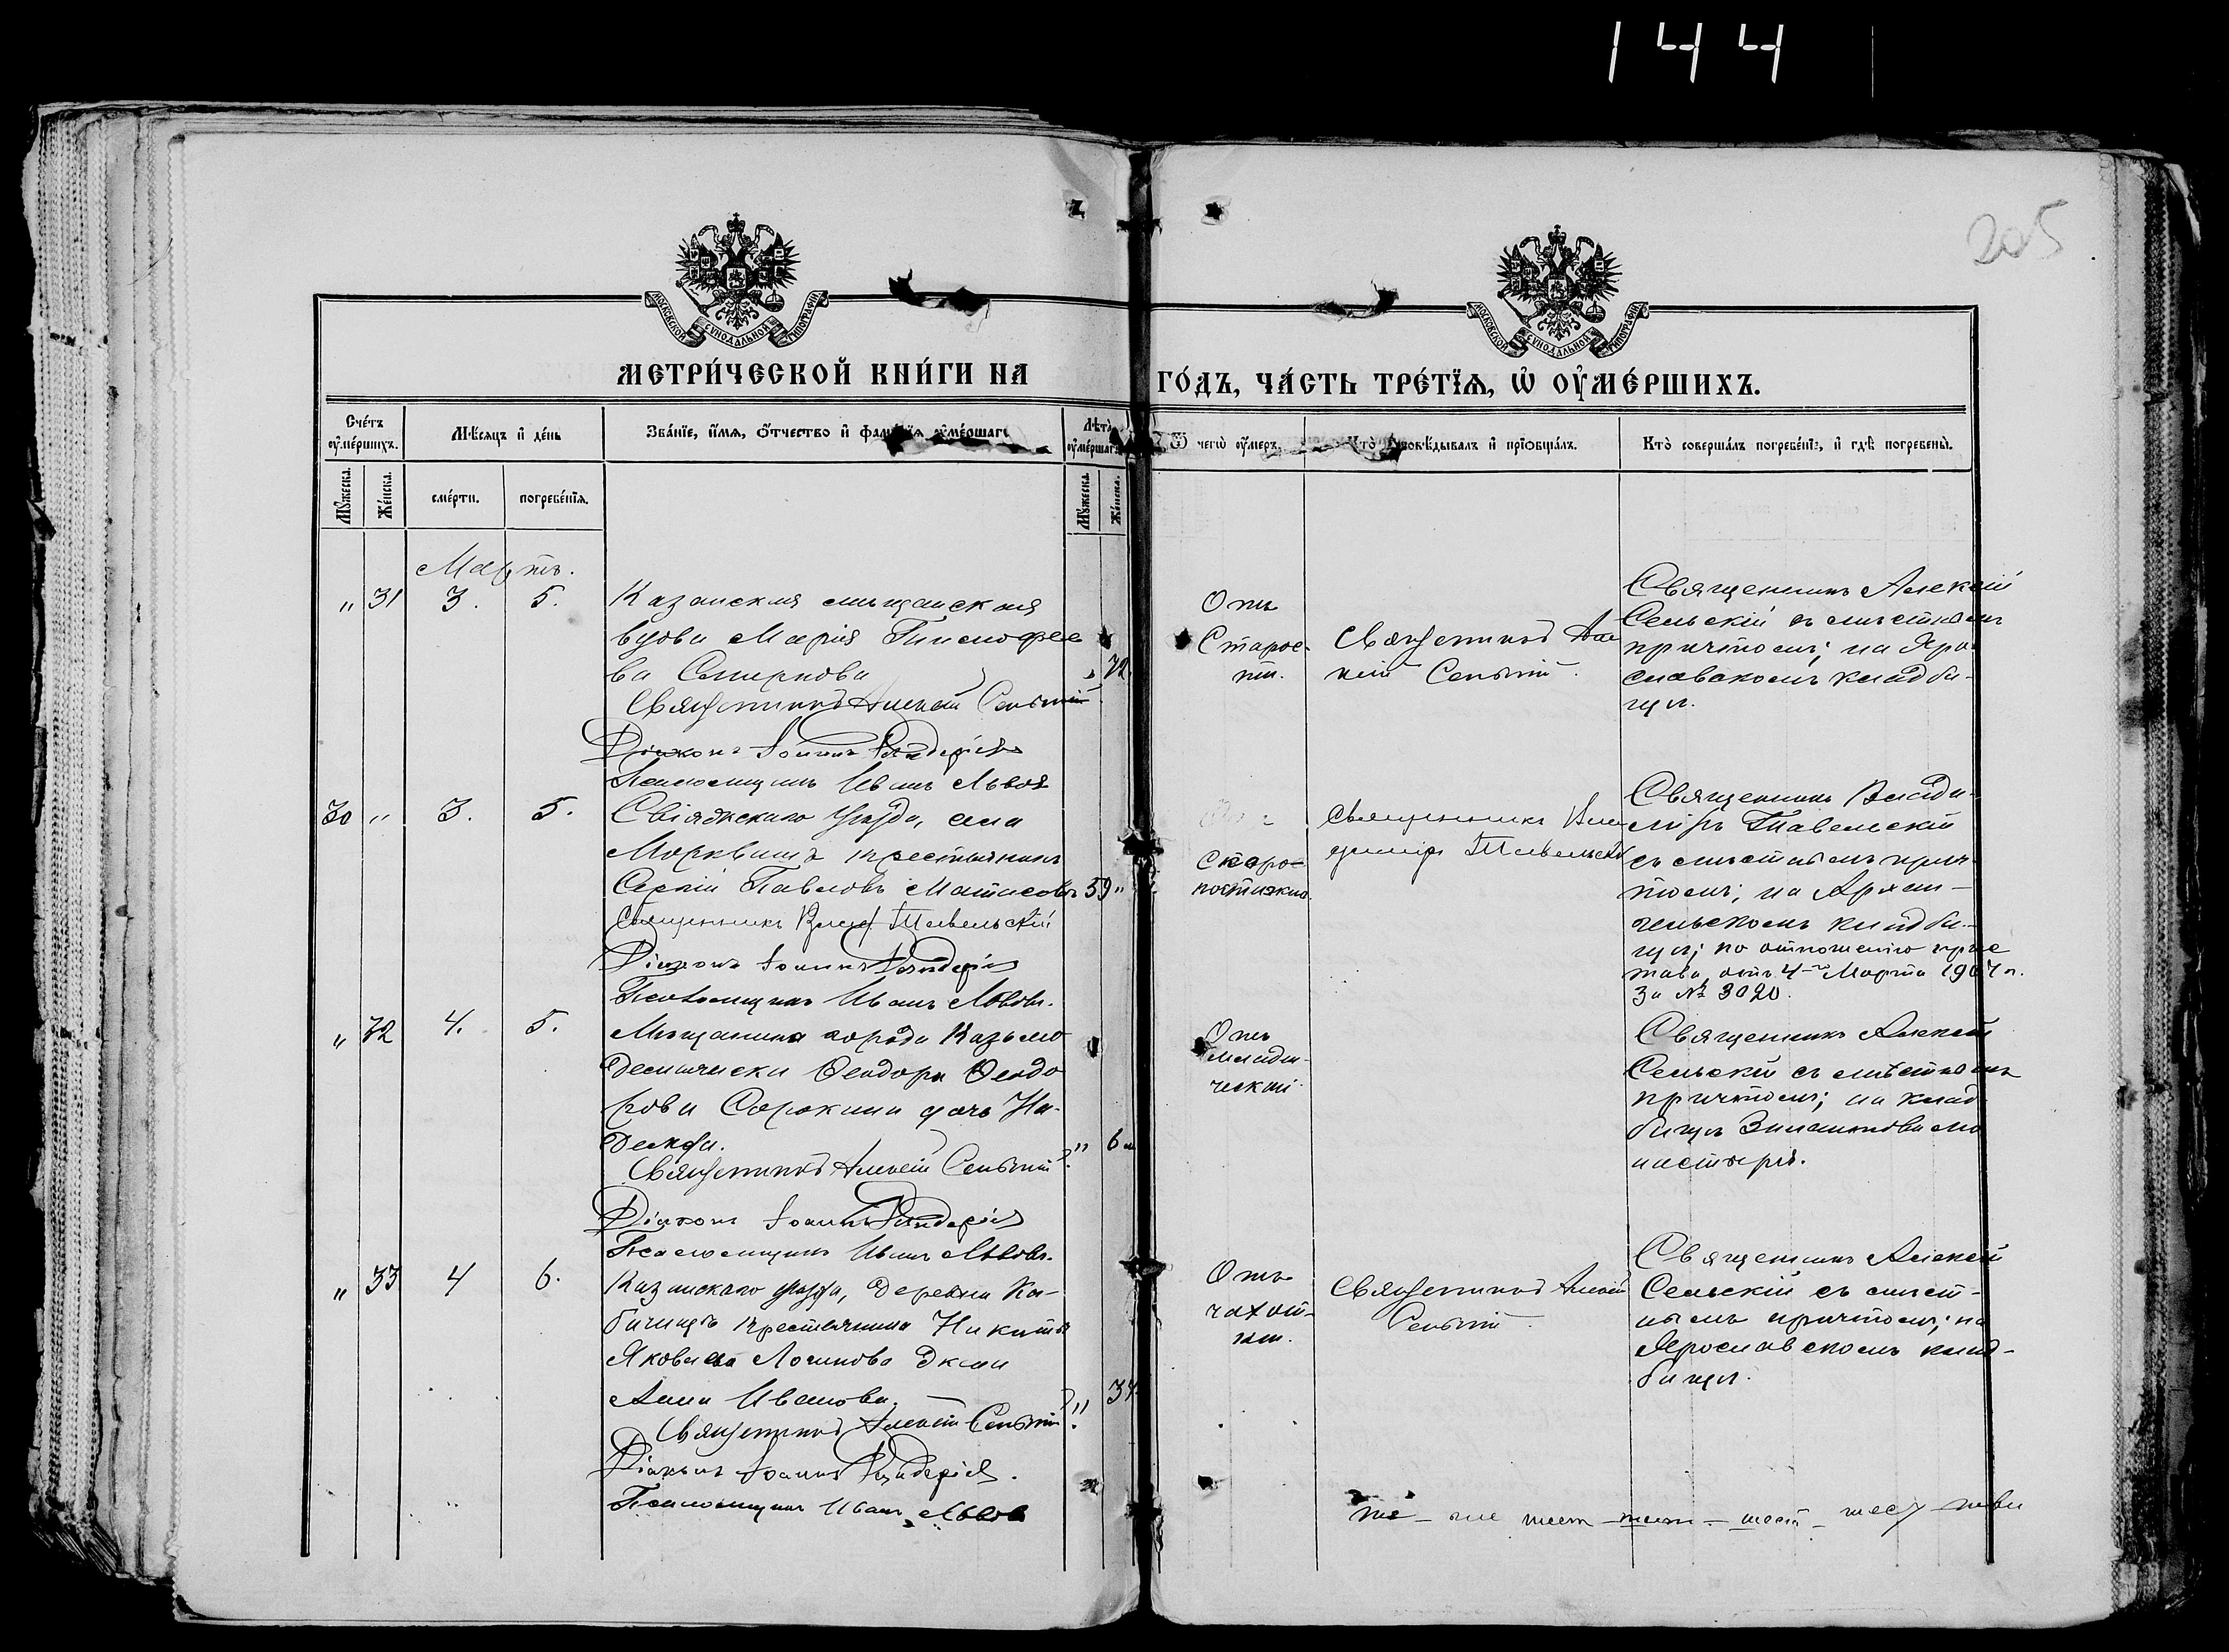 144
205
МОСКОВСКОЙ СУНОДАЛЬНОЙ ТИПОГРАФІИ
МОСКОВСКОЙ СУНОДАЛЬНОЙ ТИПОГРАФІИ
МЕТРИ́ЧЕСКОЙ КНИ́ГИ НА ГО́ДЪ, ЧА́СТЬ ТРЕ́ТЇѦ, Ѡ҆ ОУ҆МЕ́РШИХЪ.
Сче́тъ оу҆ме́ршихъ.
Мꙋ́жеска.
Же́нска.
Мѣ́сяцъ и҆ де́нь
сме́рти.
погребе́нїѧ.
Зва́нїе, и҆́мѧ, ѻ҆́тчество и҆ фамилїѧ оу҆ме́ршагѡ
Лѣ́та оу҆ме́ршагѡ
Мꙋ́жеска.
Же́нска.
Ѿ чегѡ̀ оу҆́меръ.
Кто̀ и҆сповѣ́дывалъ и҆ прїѡбща́лъ.
Кто̀ соверша́лъ погребе́нїе, и҆ гдѣ̀ погребены̀.
Мартъ.
" 31 3. 5.
Казанская мѣщанская
вдова Марія Тимофее
ва Смирнова
" 72
Священникъ Алексій Сельскій
Діаконъ Іоаннъ
Псаломщикъ Иванъ Львовъ
Отъ
старос-
ти.
Священникъ Але
ксій Сельскій.
Священникъ Алексій
Сельскій съ мѣстнымъ
причтомъ; на Яро
славскомъ кладби-
щѣ.
30 " 3. 5.
Свіяжскаго уѣзда, села
Моркваша крестьянинъ
Сергій Павловъ Матасовъ 59 "
Священникъ Влад. Тавельскій
Діаконъ Іоаннъ
Псаломщикъ Иванъ Львовъ.
Скоро-
постижно.
Священникъ Вла
димиръ Тавельскій
Священникъ Влади-
міръ Тавельскій
съ мѣстнымъ прич-
томъ; на Архан-
гельскомъ кладби-
щѣ; по отношенію прис
тава отъ 4-го Марта 1907 г.
За № 3020.
" 32 4. 5.
Мѣщанина города Казьмо
демьянска Ѳеодора Ѳеодо
рова Сорокина дочь На-
дежда.
" 6 м
Священникъ Алексій Сельскій
Діаконъ Іоаннъ
Псаломщикъ Иванъ Львовъ.
Отъ
младен-
ческой
Священникъ Алексій
Сельскій съ мѣстнымъ
причтомъ; на клад
бищѣ Зилантова мо
настыря.
" 33 4 6.
Казанскаго уѣзда, деревни Ка-
бачищъ крестьянина Никиты
Яковлева Логинова жена
Анна Иванова.
"
Священникъ Алексій Сельскій
Діаконъ Іоаннъ
Псаломщикъ Иванъ Львовъ
Отъ
чахот-
ки.
Священникъ Алексій
Сельскій.
Священникъ Алексій
Сельскій съ мѣст-
нымъ причтомъ; на
Ярославскомъ клад-
бищѣ.